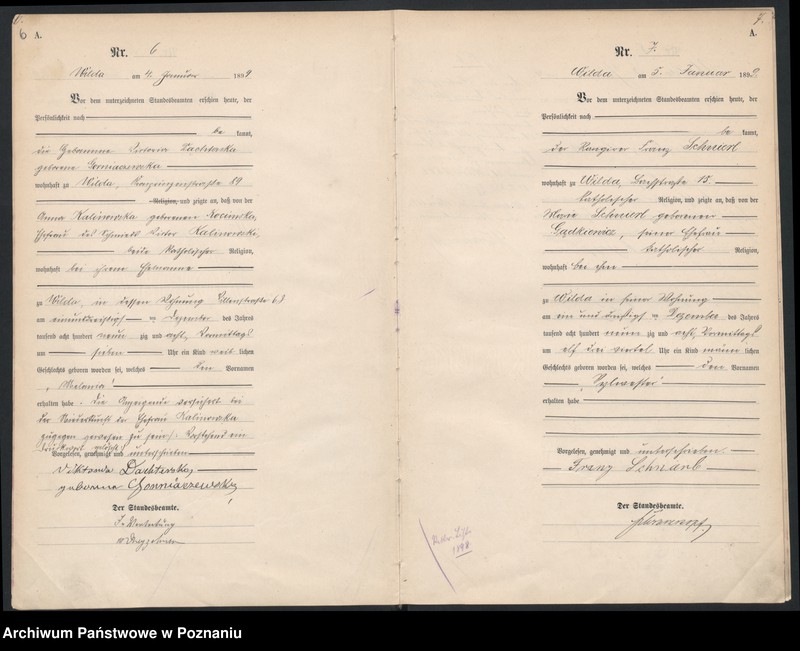 6
A.
Nr. 6
Wilda am 4. Januar 1899
Vor dem unterzeichneten Standesbeamten erschien heute, der
Persönlichkeit nach
be kannt,
die Hebamme Victoria Dachterska
geborene Gomiaszewska
wohnhaft zu Wilda,
Religion, und zeigte an, daß von der
Anna Kalinowska geborenen
Ehefrau des Schmieds Victor Kalinowski,
beide katholischer Religion,
wohnhaft bei ihrem Ehemanne
zu Wilda, in dessen Wohnung
am einunddreißigsten Dezember des Jahres
tausend acht hundert neun zig und acht, Vormittags
um sieben Uhr ein Kind weib lichen
Geschlechts geboren worden sei, welches den Vornamen
Melania
erhalten habe. Die Anzeigende versichert bei
der Niederkunft der Ehefrau Kalinowska
zugegen gewesen zu sein.
Vorgelesen, genehmigt und unterschrieben
Viktoria Dachterska,
geborene Gomniaszewska
Der Standesbeamte.
In Vertretung
7.
A.
Nr. 7.
Wilda am 5. Januar 1899
Vor dem unterzeichneten Standesbeamten erschien heute, der
Persönlichkeit nach
be kannt,
der Rangirer Franz
wohnhaft zu Wilda, 15.
katholischer Religion, und zeigte an, daß von der
Marie geborenen
seiner Ehefrau
katholischer Religion,
wohnhaft bei ihm
zu Wilda in seiner Wohnung
am ein und dreißigsten Dezember des Jahres
tausend acht hundert neun zig und acht, Vormittags
um elf drei viertel Uhr ein Kind männ lichen
Geschlechts geboren worden sei, welches den Vornamen
Sylwester
erhalten habe
Vorgelesen, genehmigt und unterschrieben.
Franz
Der Standesbeamte.
1898
Archiwum Państwowe w Poznaniu